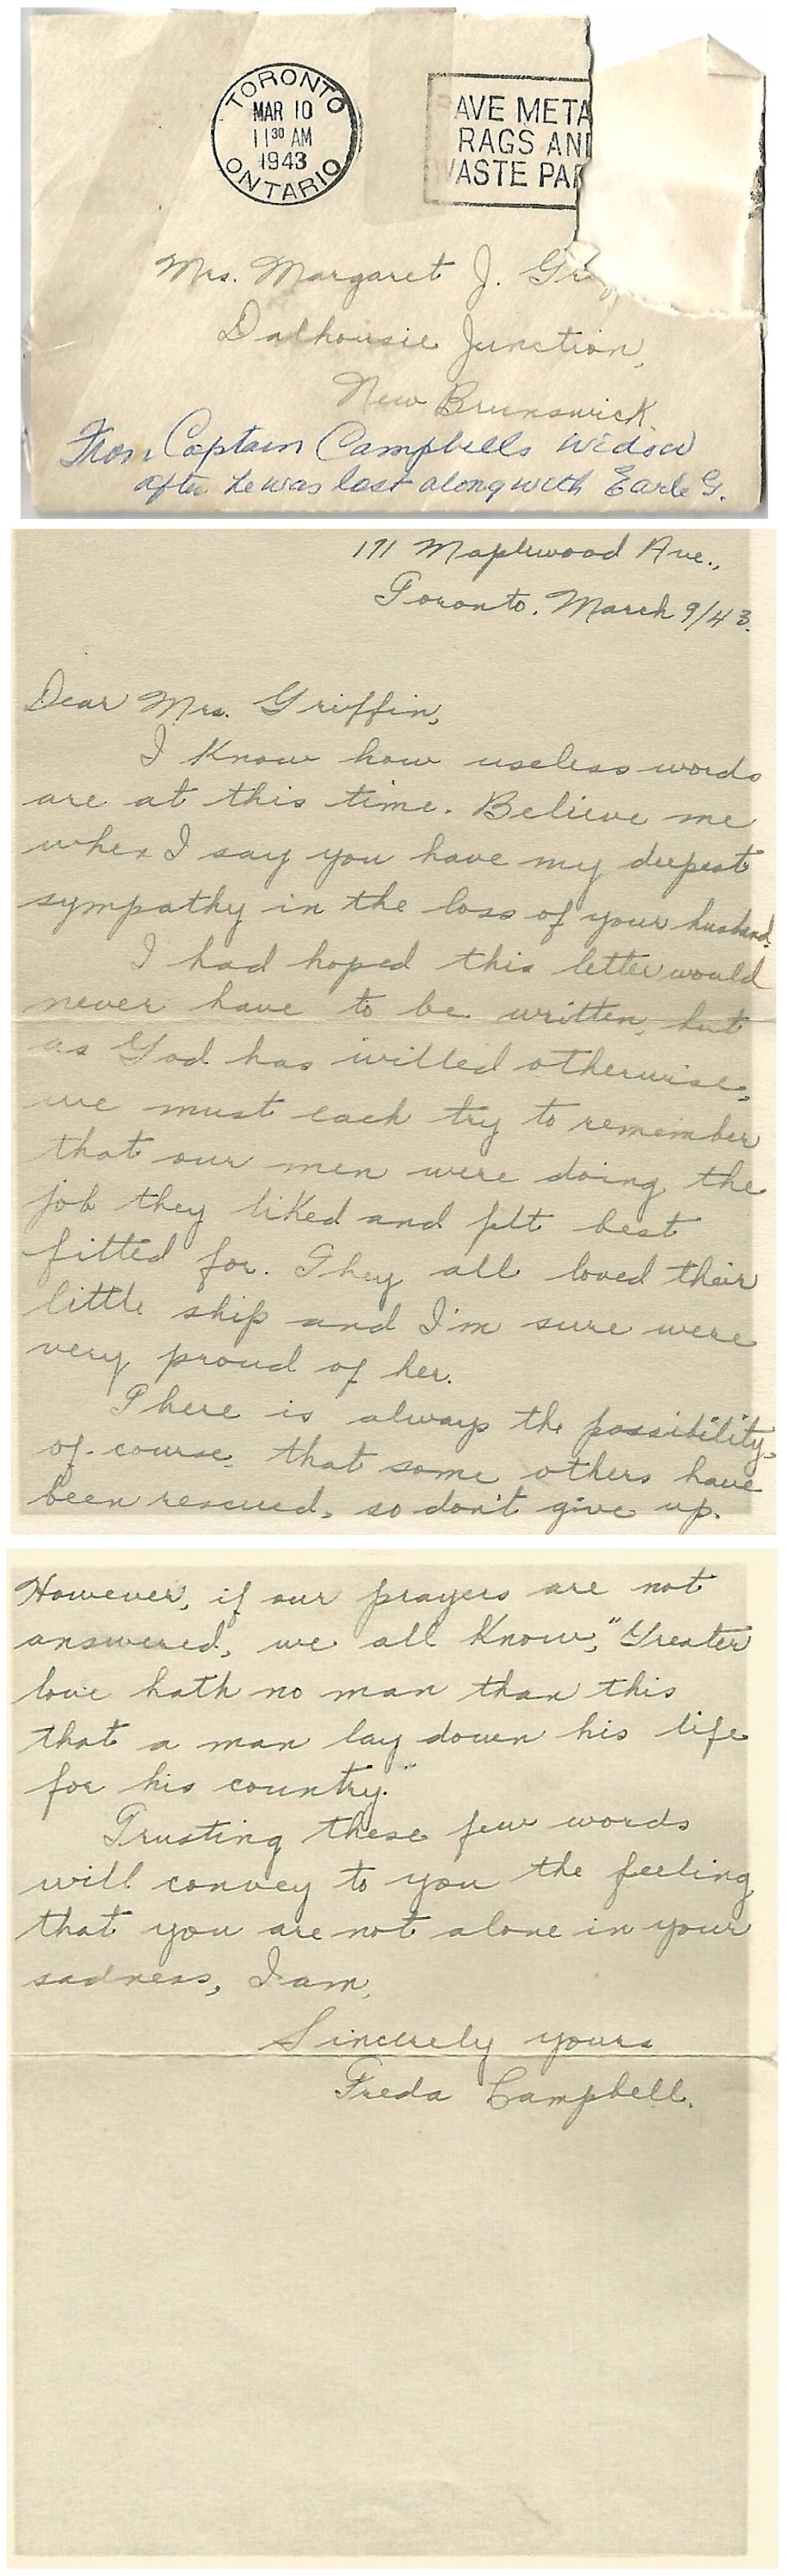 TORONTO
MAR 10
11 30 AM
1943
ONTARIO
AVE META
RAGS AND
WASTE PAP
Mrs. Margaret J. Gri
Dalhousie Junction,
New Brunswick.
From Captain Campbells Widow
after he was lost along with Earle G.
171 Maplewood Ave.,
Toronto. March 9/43.
Dear Mrs. Griffin,
I know how useless words
are at this time. Believe me
when I say you have my deepest
sympathy in the loss of your husband.
I had hoped this letter would
never have to be written, but
as God has willed otherwise,
we must each try to remember
that our men were doing the
job they liked and felt best
fitted for. They all loved their
little ship and I'm sure were
very proud of her.
There is always the possibility,
of course, that some others have
been rescued, so don't give up.
However, if our prayers are not
answered, we all know, "Greater
love hath no man than this
that a man lay down his life
for his country."
Trusting these few words
will convey to you the feeling
that you are not alone in your
sadness, I am,
Sincerely yours
Freda Campbell.